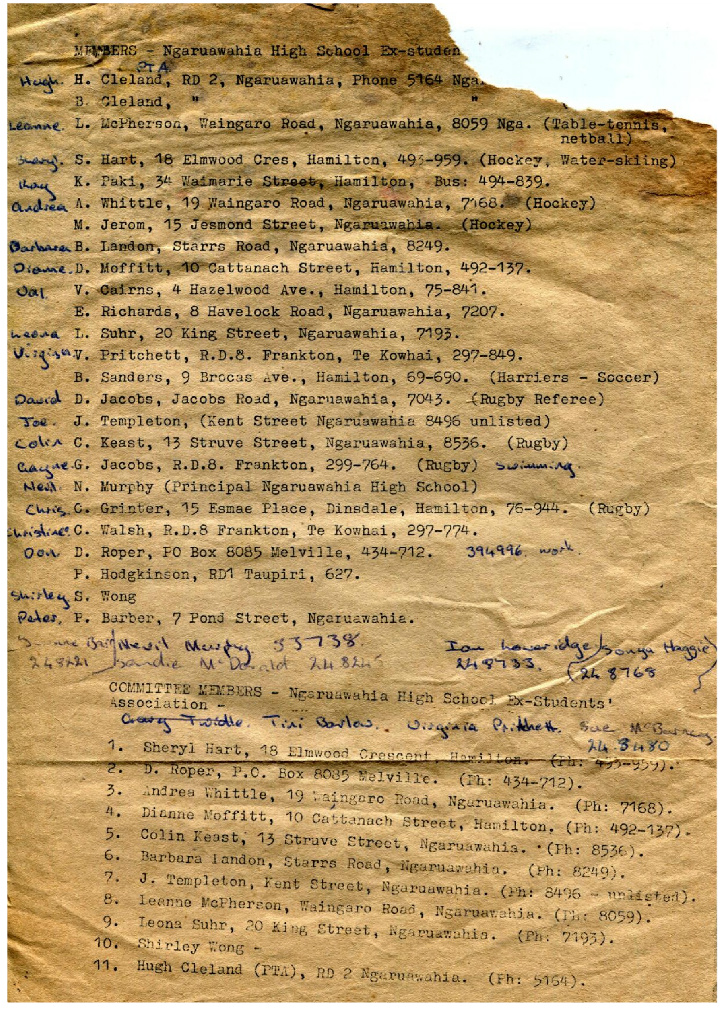 MEMBERS - Ngaruawahia High School Ex-studen
PTA
Hugh. H. Cleland, RD 2, Ngaruawahia, Phone 5164 Nga.
B. Cleland, " "
Leanne. L. McPherson, Waingaro Road, Ngaruawahia, 8059 Nga. (Table-tennis,
netball)
Sheryl. S. Hart, 18 Elmwood Cres, Hamilton, 493-959. (Hockey, Water-skiing)
K. Paki, 34 Waimarie Street, Hamilton, Bus: 494-839.
Andrea A. Whittle, 19 Waingaro Road, Ngaruawahia, 7168. (Hockey)
M. Jerom, 15 Jesmond Street, Ngaruawahia. (Hockey)
Barbara B. Landon, Starrs Road, Ngaruawahia, 8249.
Dianne. D. Moffitt, 10 Cattanach Street, Hamilton, 492-137.
Val. V. Cairns, 4 Hazelwood Ave., Hamilton, 75-841.
E. Richards, 8 Havelock Road, Ngaruawahia, 7207.
Leona L. Suhr, 20 King Street, Ngaruawahia, 7193.
Virginia V. Pritchett, R.D.8. Frankton, Te Kowhai, 297-849.
B. Sanders, 9 Brocas Ave., Hamilton, 69-690. (Harriers - Soccer)
David D. Jacobs, Jacobs Road, Ngaruawahia, 7043. (Rugby Referee)
Joe. J. Templeton, (Kent Street Ngaruawahia 8496 unlisted)
Colin C. Keast, 13 Struve Street, Ngaruawahia, 8536. (Rugby)
Gayne G. Jacobs, R.D.8. Frankton, 299-764. (Rugby) swimming.
Nevil. N. Murphy (Principal Ngaruawahia High School)
Chris. C. Grinter, 15 Esmae Place, Dinsdale, Hamilton, 76-944. (Rugby)
Christine. C. Walsh, R.D.8 Frankton, Te Kowhai, 297-774.
Don D. Roper, PO Box 8085 Melville, 434-712. 394996. work.
P. Hodgkinson, RD1 Taupiri, 627.
Shirley S. Wong
Peter. P. Barber, 7 Pond Street, Ngaruawahia.
Nevil Murphy 33738. Ian Loveridge/Sonya Haggie)
248221 /Sandie McDonald 24824 248733. (248768
COMMITTEE MEMBERS - Ngaruawahia High School Ex-Students'
Association -
Twidle. Tini Barlow. Virginia Pritchett. Sue McBurney
248480
1. Sheryl Hart, 18 Elmwood Crescent, Hamilton. (Ph: 493-959).
2. D. Roper, P.O. Box 8085 Melville. (Ph: 434-712).
3. Andrea Whittle, 19 Waingaro Road, Ngaruawahia. (Ph: 7168).
4. Dianne Moffitt, 10 Cattanach Street, Hamilton. (Ph: 492-137).
5. Colin Keast, 13 Struve Street, Ngaruawahia. (Ph: 8536).
6. Barbara Landon, Starrs Road, Ngaruawahia. (Ph: 8249).
7. J. Templeton, Kent Street, Ngaruawahia. (Ph: 8496 - unlisted).
8. Leanne McPherson, Waingaro Road, Ngaruawahia. (Ph: 8059).
9. Leona Suhr, 20 King Street, Ngaruawahia. (Ph: 7193).
10. Shirley Wong -
11. Hugh Cleland (PTA), RD 2 Ngaruawahia. (Ph: 5164).